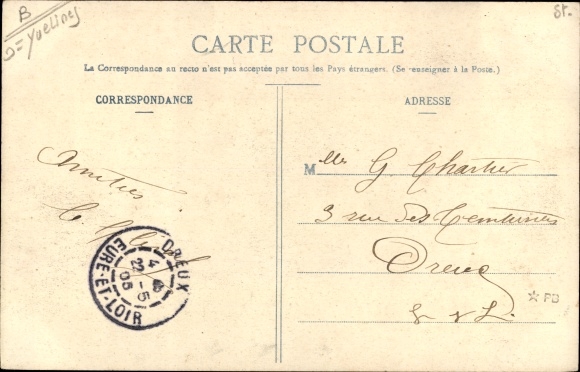 B
D=Yvelines
St.
CARTE POSTALE
La Correspondance au recto n'est pas acceptée par tous les Pays étrangers. (Se renseigner à la Poste.)
CORRESPONDANCE
ADRESSE
Amitiés
Mlle G Chartier
3 rue des Teinturiers
Dreux
E & L.
DREUX
4 45
22 -5
05
EURE-ET-LOIR
* PB